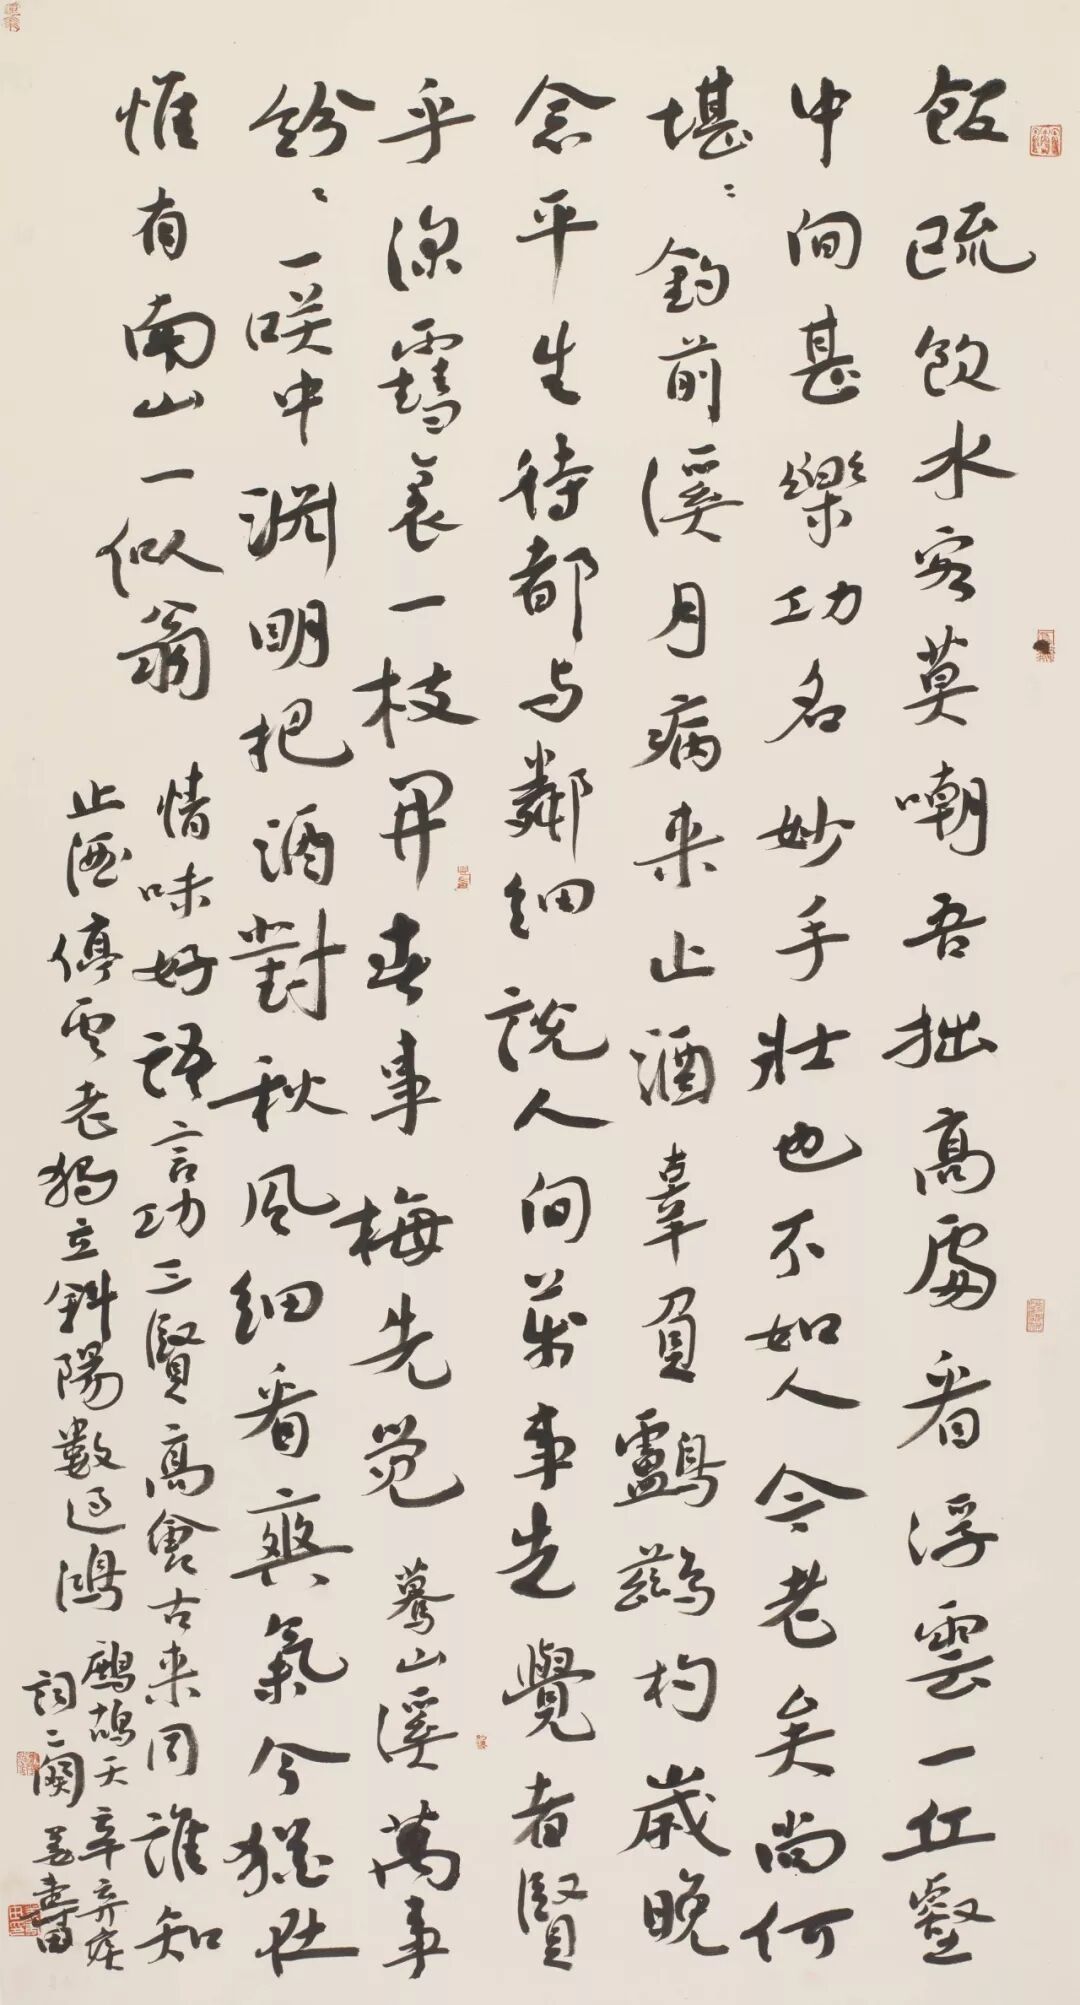 飯疏飲水客莫嘲吾拙高處看浮雲一丘壑
中間甚樂功名妙手壯也不如人今老矣尚何
堪〻釣前溪月病來止酒辜負鸕鶿杓歲晚
念平生待都与鄰細說人間萬事先覺者賢
乎深雪裏一枝開春事梅先覺 驀山溪 萬事
紛〻一咲中淵明把酒對秋風細看爽氣今猶在
惟有南山一似翁 情味好語言功三賢高會古來同誰知
止酒停雲老獨立斜陽數過鴻 鷓鴣天辛棄疾
詞二闋 姜壽田